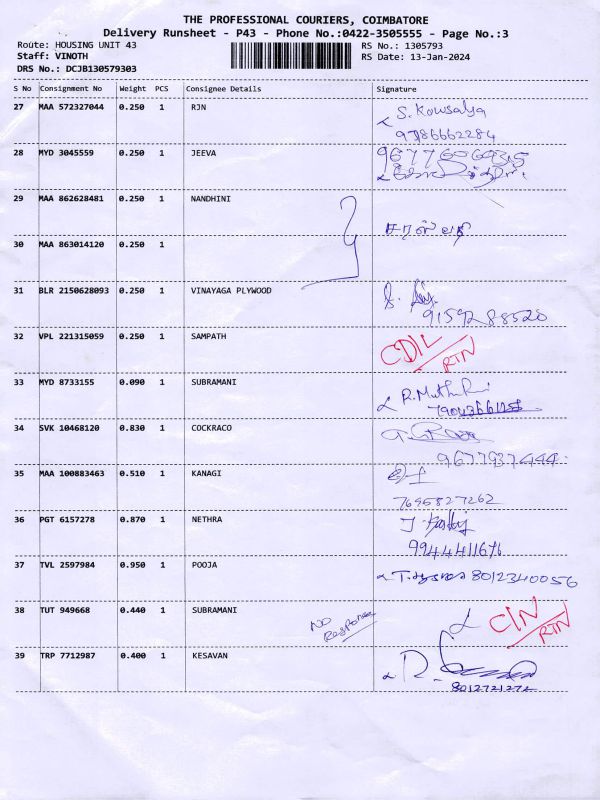 THE PROFESSIONAL COURIERS, COIMBATORE
Delivery Runsheet - P43 - Phone No.:0422-3505555 - Page No.:3
Route: HOUSING UNIT 43
RS No.: 1305793
Staff: VINOTH
RS Date: 13-Jan-2024
DRS No.: DCJB130579303
S No Consignment No Weight PCS Consignee Details Signature
27 MAA 572327044 0.250 1 RJN S. Kowsalya
9786662284
28 MYD 3045559 0.250 1 JEEVA
29 MAA 862628481 0.250 1 NANDHINI
30 MAA 863014120 0.250 1
31 BLR 2150628093 0.250 1 VINAYAGA PLYWOOD
9159288520
32 VPL 221315059 0.250 1 SAMPATH
RTN
33 MYD 8733155 0.090 1 SUBRAMANI
34 SVK 10468120 0.830 1 COCKRACO
9677937444
35 MAA 100883463 0.510 1 KANAGI
7695827262
36 PGT 6157278 0.870 1 NETHRA
9944411676
37 TVL 2597984 0.950 1 POOJA 8012340056
38 TUT 949668 0.440 1 SUBRAMANI NO
Response
C/N
RTN
39 TRP 7712987 0.400 1 KESAVAN
8012721272